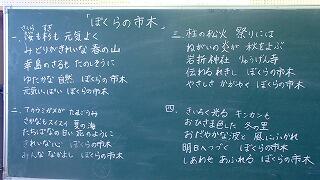 「ぼくらの市木」
一、桜も杉も 元気よく
さくら すぎ
みどりがきれいな 春の山
幸島のさるも たのしそうに
ゆたかな自然 ぼくらの市木
元気いっぱい ぼくらの市木
二、アカウミガメが たまごうみ
さかなもスイスイ 夏の海
たちばなの白い 花のように
きれいな心 ぼくらの市木
みんな なかよし ぼくらの市木
三、柱の松火 祭りには
ねがいの火が 秋をよぶ
岩折神社 りゅうげん寺
伝わるれきし ぼくらの市木
やさしさ かがやく ぼくらの市木
四、きいろく光る キンカンも
おひさま色した 冬の里
おだやかな波と 風にふかれ
明日へつづく ぼくらの市木
しあわせ あふれる ぼくらの市木